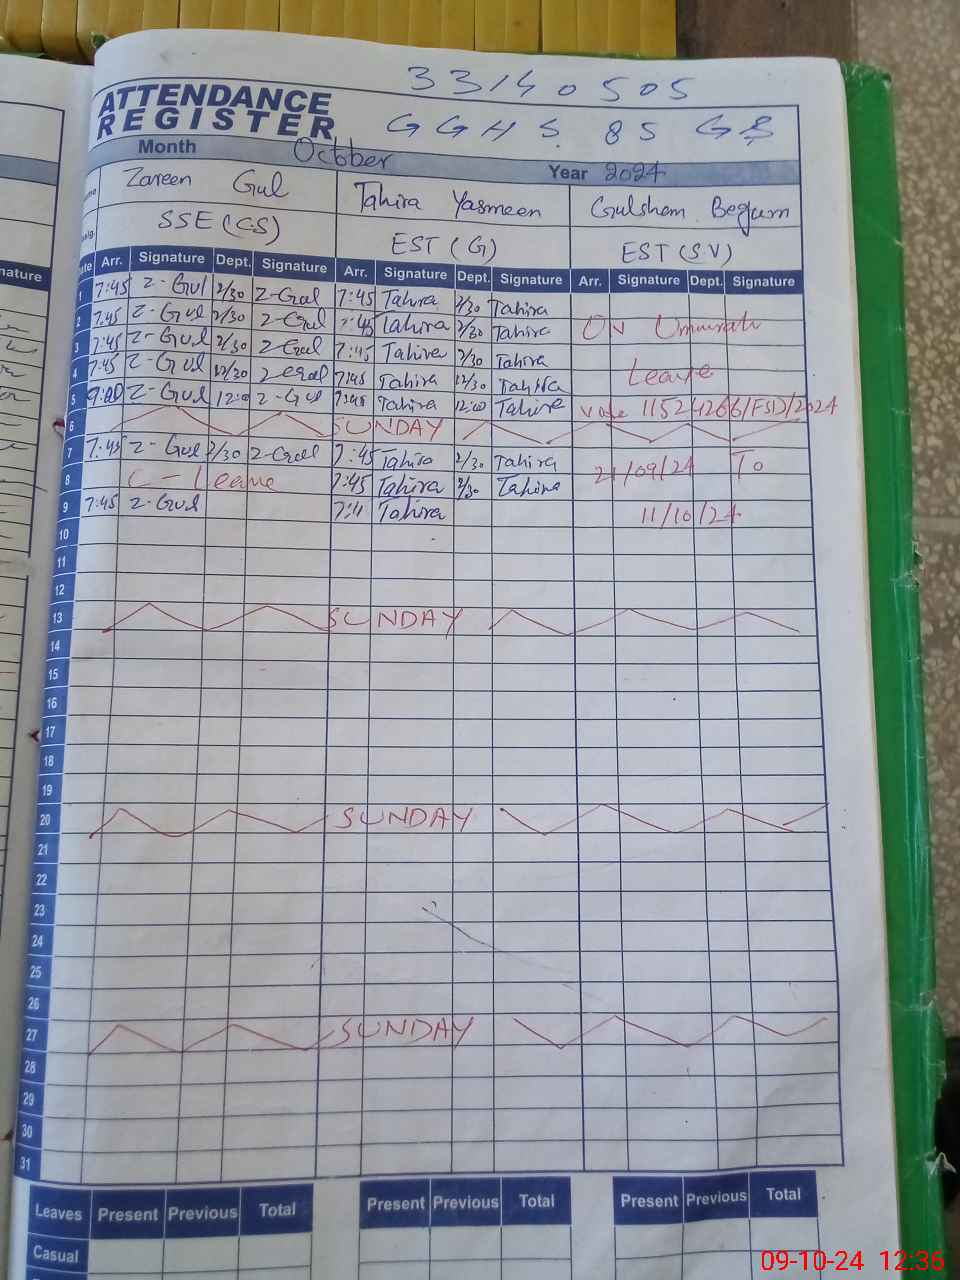 33140505
ATTENDANCE
REGISTER GGHS 85 GB
Month October Year 2024
Zareen Gul Tahira Yasmeen Gulshem Begum
SSE (CS) EST (G) EST (S.V)
Arr. Signature Dept. Signature Arr. Signature Dept. Signature Arr. Signature Dept. Signature
1 7:45 Z-Gul 2/30 Z-Gul 7:45 Tahira 2/30 Tahira
2 7:45 Z-Gul 2/30 Z-Gul 7:45 Tahira 2/30 Tahira On Ummrah
3 7:45 Z-Gul 2/30 Z-Gul 7:45 Tahira 2/30 Tahira
4 7:45 Z-Gul 12/30 Z-Gul 7:45 Tahira 12/30 Tahira Leave
5 Z-Gul 12:00 Z-Gul 7:45 Tahira 12:00 Tahira 11524266/FSD/2024
6 SUNDAY
7 7:45 Z-Gul 2/30 Z-Gul 7:45 Tahira 2/30 Tahira 21/09/24 To
8 C-Leave 7:45 Tahira 2/30 Tahira
9 7:45 Z-Gul Tahira 11/10/24
10
11
12
13 SUNDAY
14
15
16
17
18
19
20 SUNDAY
21
22
23
24
25
26
27 SUNDAY
28
29
30
31
Leaves Present Previous Total Present Previous Total Present Previous Total
Casual
09-10-24 12:36